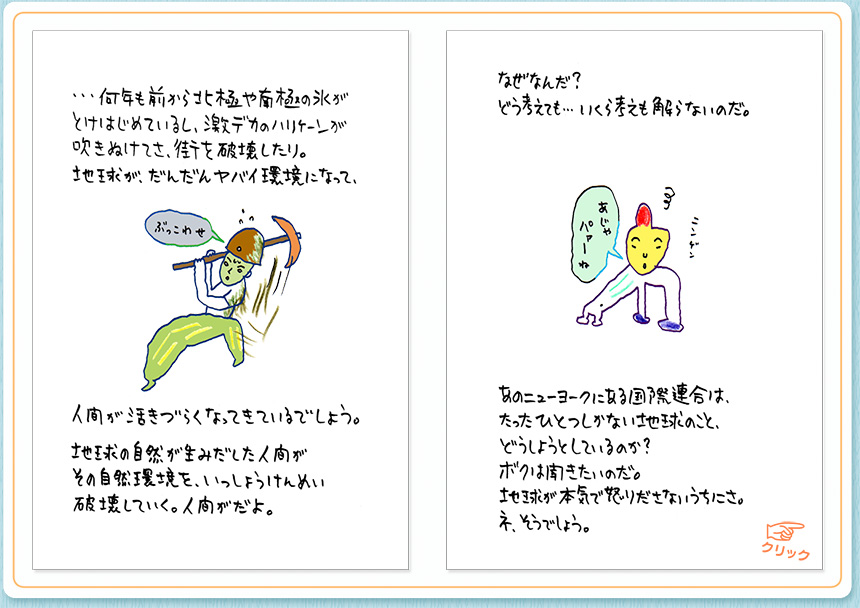 ・・・何年も前から北極や南極の氷が
とけはじめているし、激デカのハリケーンが
吹きぬけてさ、街を破壊したり。
地球が、だんだんヤバイ環境になって、
ぶっこわせ
人間が活きづらくなってきているでしょう。
地球の自然が生みだした人間が
その自然環境を、いっしょうけんめい
破壊していく。人間がだよ。
なぜなんだ？
どう考えても…いくら考えも解らないのだ。
あじゃ
パァーね
ニンゲン
あのニューヨークにある国際連合は、
たったひとつしかない地球のこと、
どうしようとしているのか？
ボクは聞きたいのだ。
地球が本気で怒りださないうちにさ。
ネ、そうでしょう。
クリック